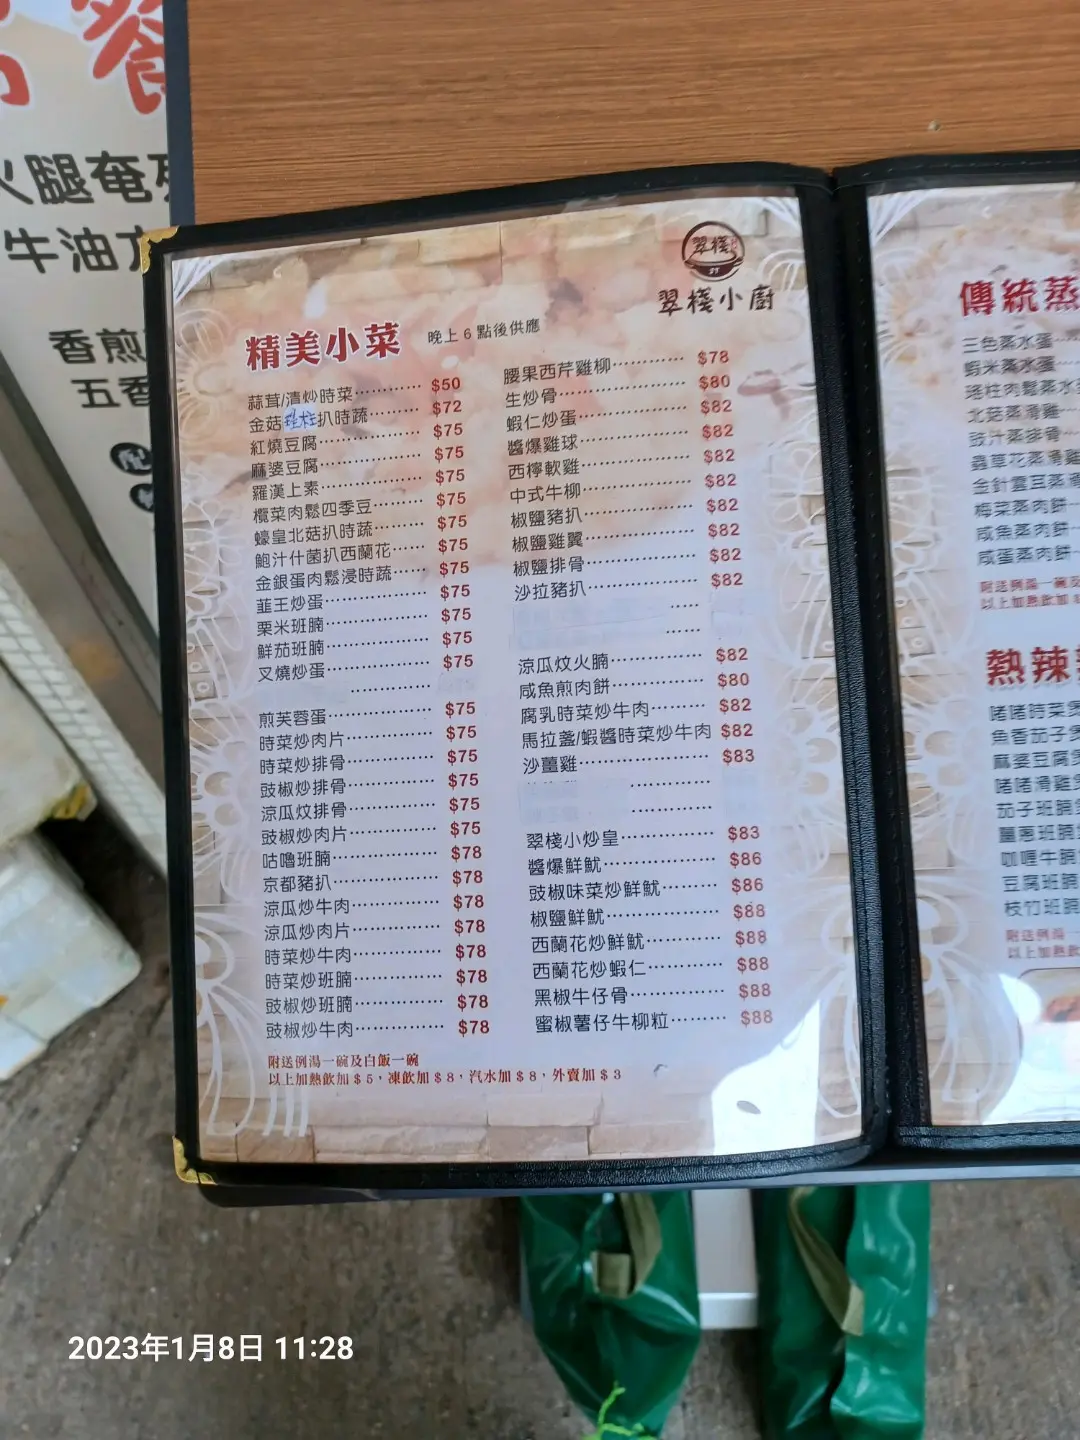 餐
火腿奄列
牛油方
香煎
五香
翠棧
翠棧小廚
精美小菜 晚上6點後供應
蒜茸/清炒時菜 $50
金菇瑤柱扒時蔬 $72
紅燒豆腐 $75
麻婆豆腐 $75
羅漢上素 $75
欖菜肉鬆四季豆 $75
蠔皇北菇扒時蔬 $75
鮑汁什菌扒西蘭花 $75
金銀蛋肉鬆浸時蔬 $75
韮王炒蛋 $75
栗米班腩 $75
鮮茄班腩 $75
叉燒炒蛋 $75
煎芙蓉蛋 $75
時菜炒肉片 $75
時菜炒排骨 $75
豉椒炒排骨 $75
涼瓜炆排骨 $75
豉椒炒肉片 $75
咕嚕班腩 $78
京都豬扒 $78
涼瓜炒牛肉 $78
涼瓜炒肉片 $78
時菜炒牛肉 $78
時菜炒班腩 $78
豉椒炒班腩 $78
豉椒炒牛肉 $78
腰果西芹雞柳 $78
生炒骨 $80
蝦仁炒蛋 $82
醬爆雞球 $82
西檸軟雞 $82
中式牛柳 $82
椒鹽豬扒 $82
椒鹽雞翼 $82
椒鹽排骨 $82
沙拉豬扒 $82
涼瓜炆火腩 $82
咸魚煎肉餅 $80
腐乳時菜炒牛肉 $82
馬拉盞/蝦醬時菜炒牛肉 $82
沙薑雞 $83
翠棧小炒皇 $83
醬爆鮮魷 $86
豉椒味菜炒鮮魷 $86
椒鹽鮮魷 $88
西蘭花炒鮮魷 $88
西蘭花炒蝦仁 $88
黑椒牛仔骨 $88
蜜椒薯仔牛柳粒 $88
附送例湯一碗及白飯一碗
以上加熱飲加$5，凍飲加$8，汽水加$8，外賣加$3
傳統蒸
三色蒸水蛋
蝦米蒸水蛋
瑤柱肉鬆蒸水蛋
北菇蒸滑雞
豉汁蒸排骨
蟲草花蒸滑雞
金針雲耳蒸滑
梅菜蒸肉餅
咸魚蒸肉餅
咸蛋蒸肉餅
附送例湯一碗及
以上加熱飲加
熱辣
啫啫時菜煲
魚香茄子煲
麻婆豆腐煲
啫啫滑雞煲
茄子班腩
薑蔥班腩
咖喱牛腩
豆腐班腩
枝竹班腩
附送例湯一
以上加熱飲
2023年1月8日 11:28